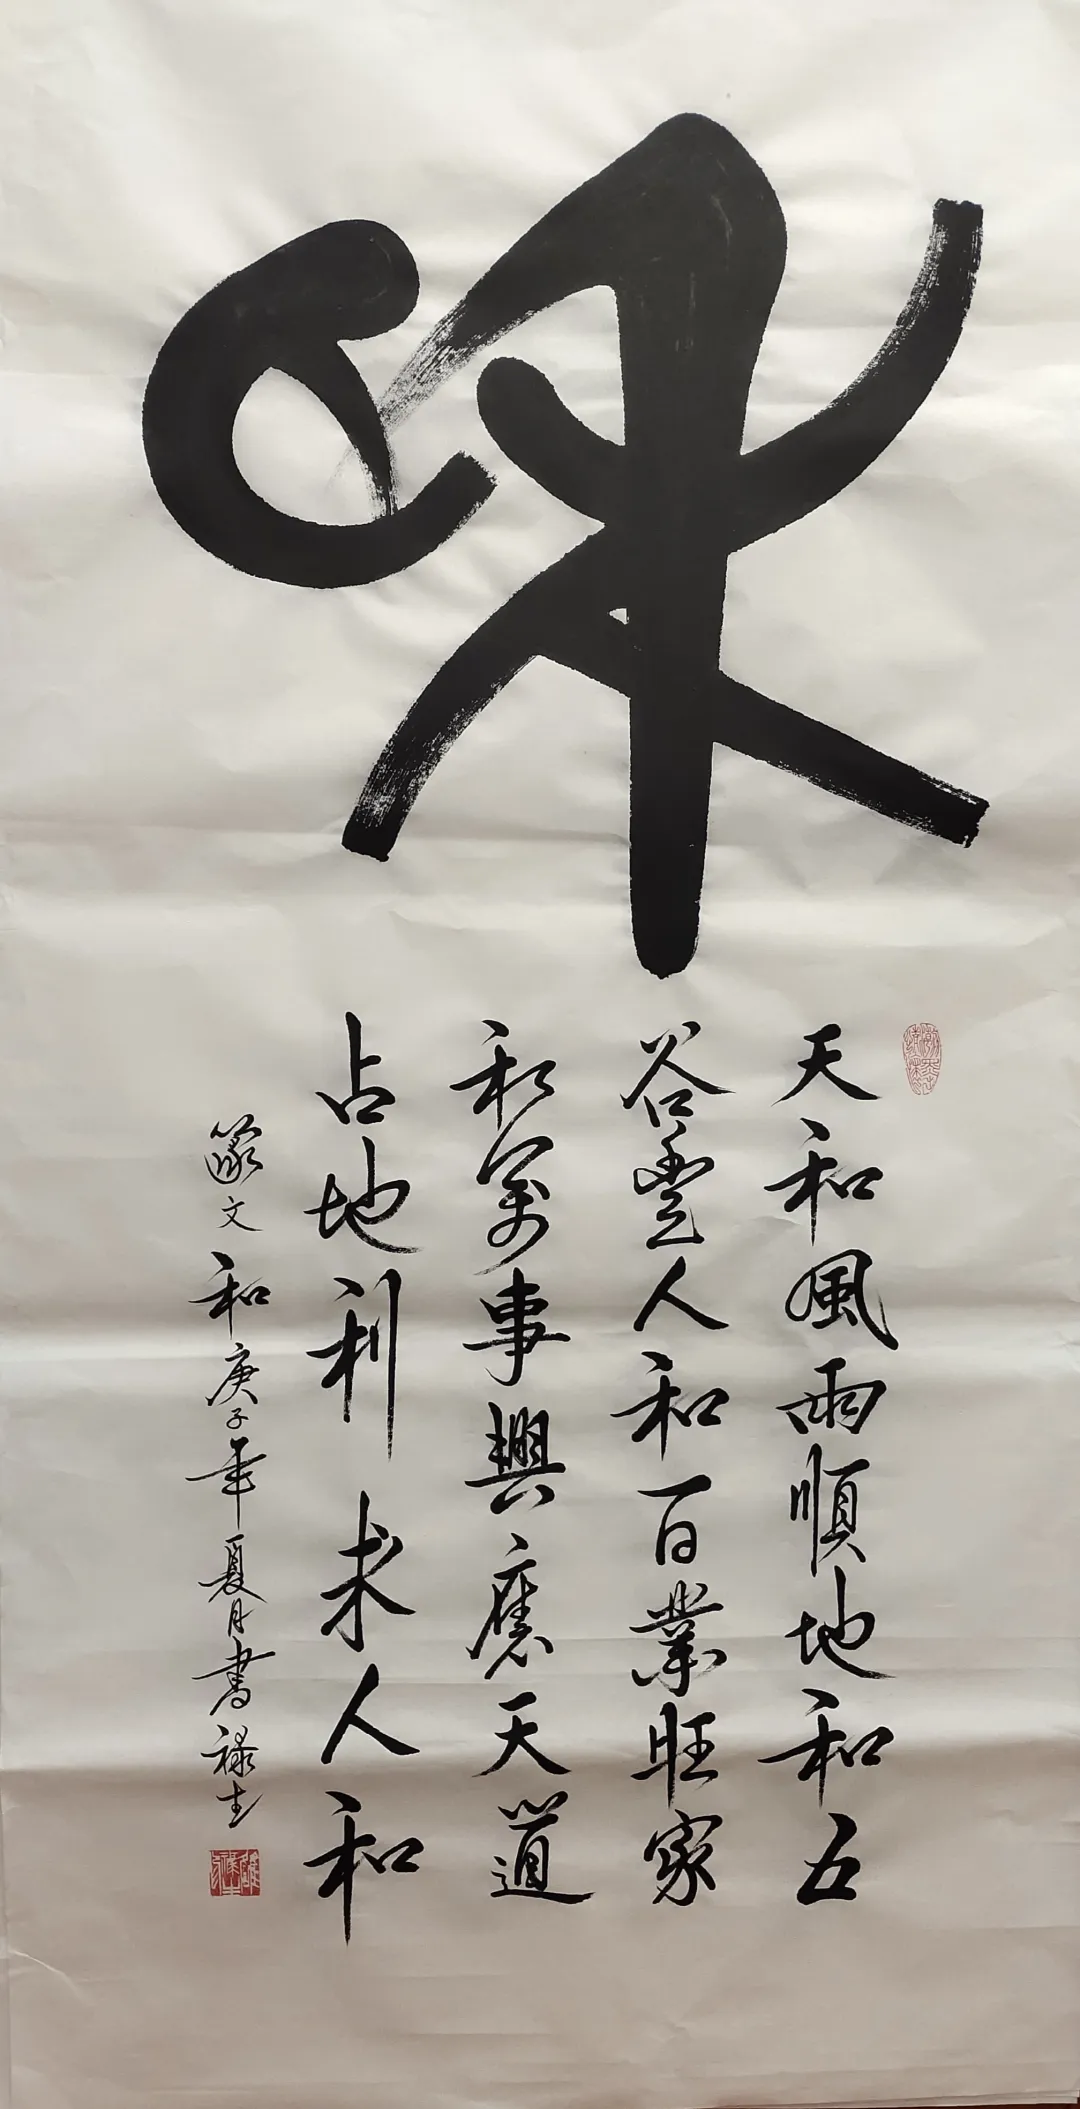 和
天和風雨順地和五
谷豐人和百業旺家
和萬事興應天道
占地利求人和
篆文和庚子年夏月書祿生